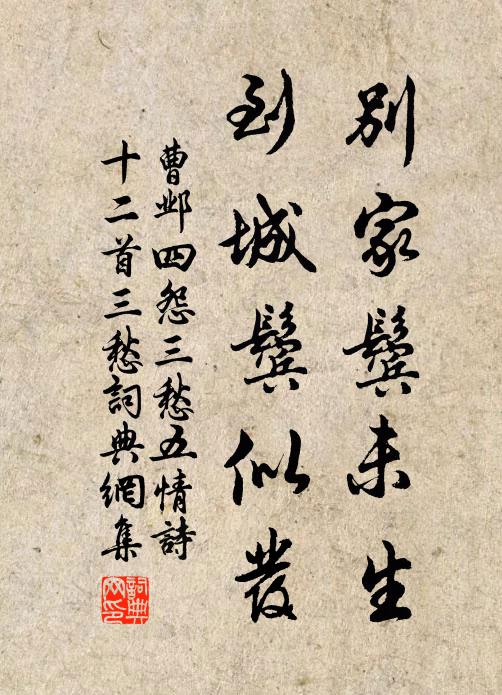 別家鬢未生
到城鬢似發
曹邺四怨三愁五情詩
十二首三愁詞典網集
詞典網印